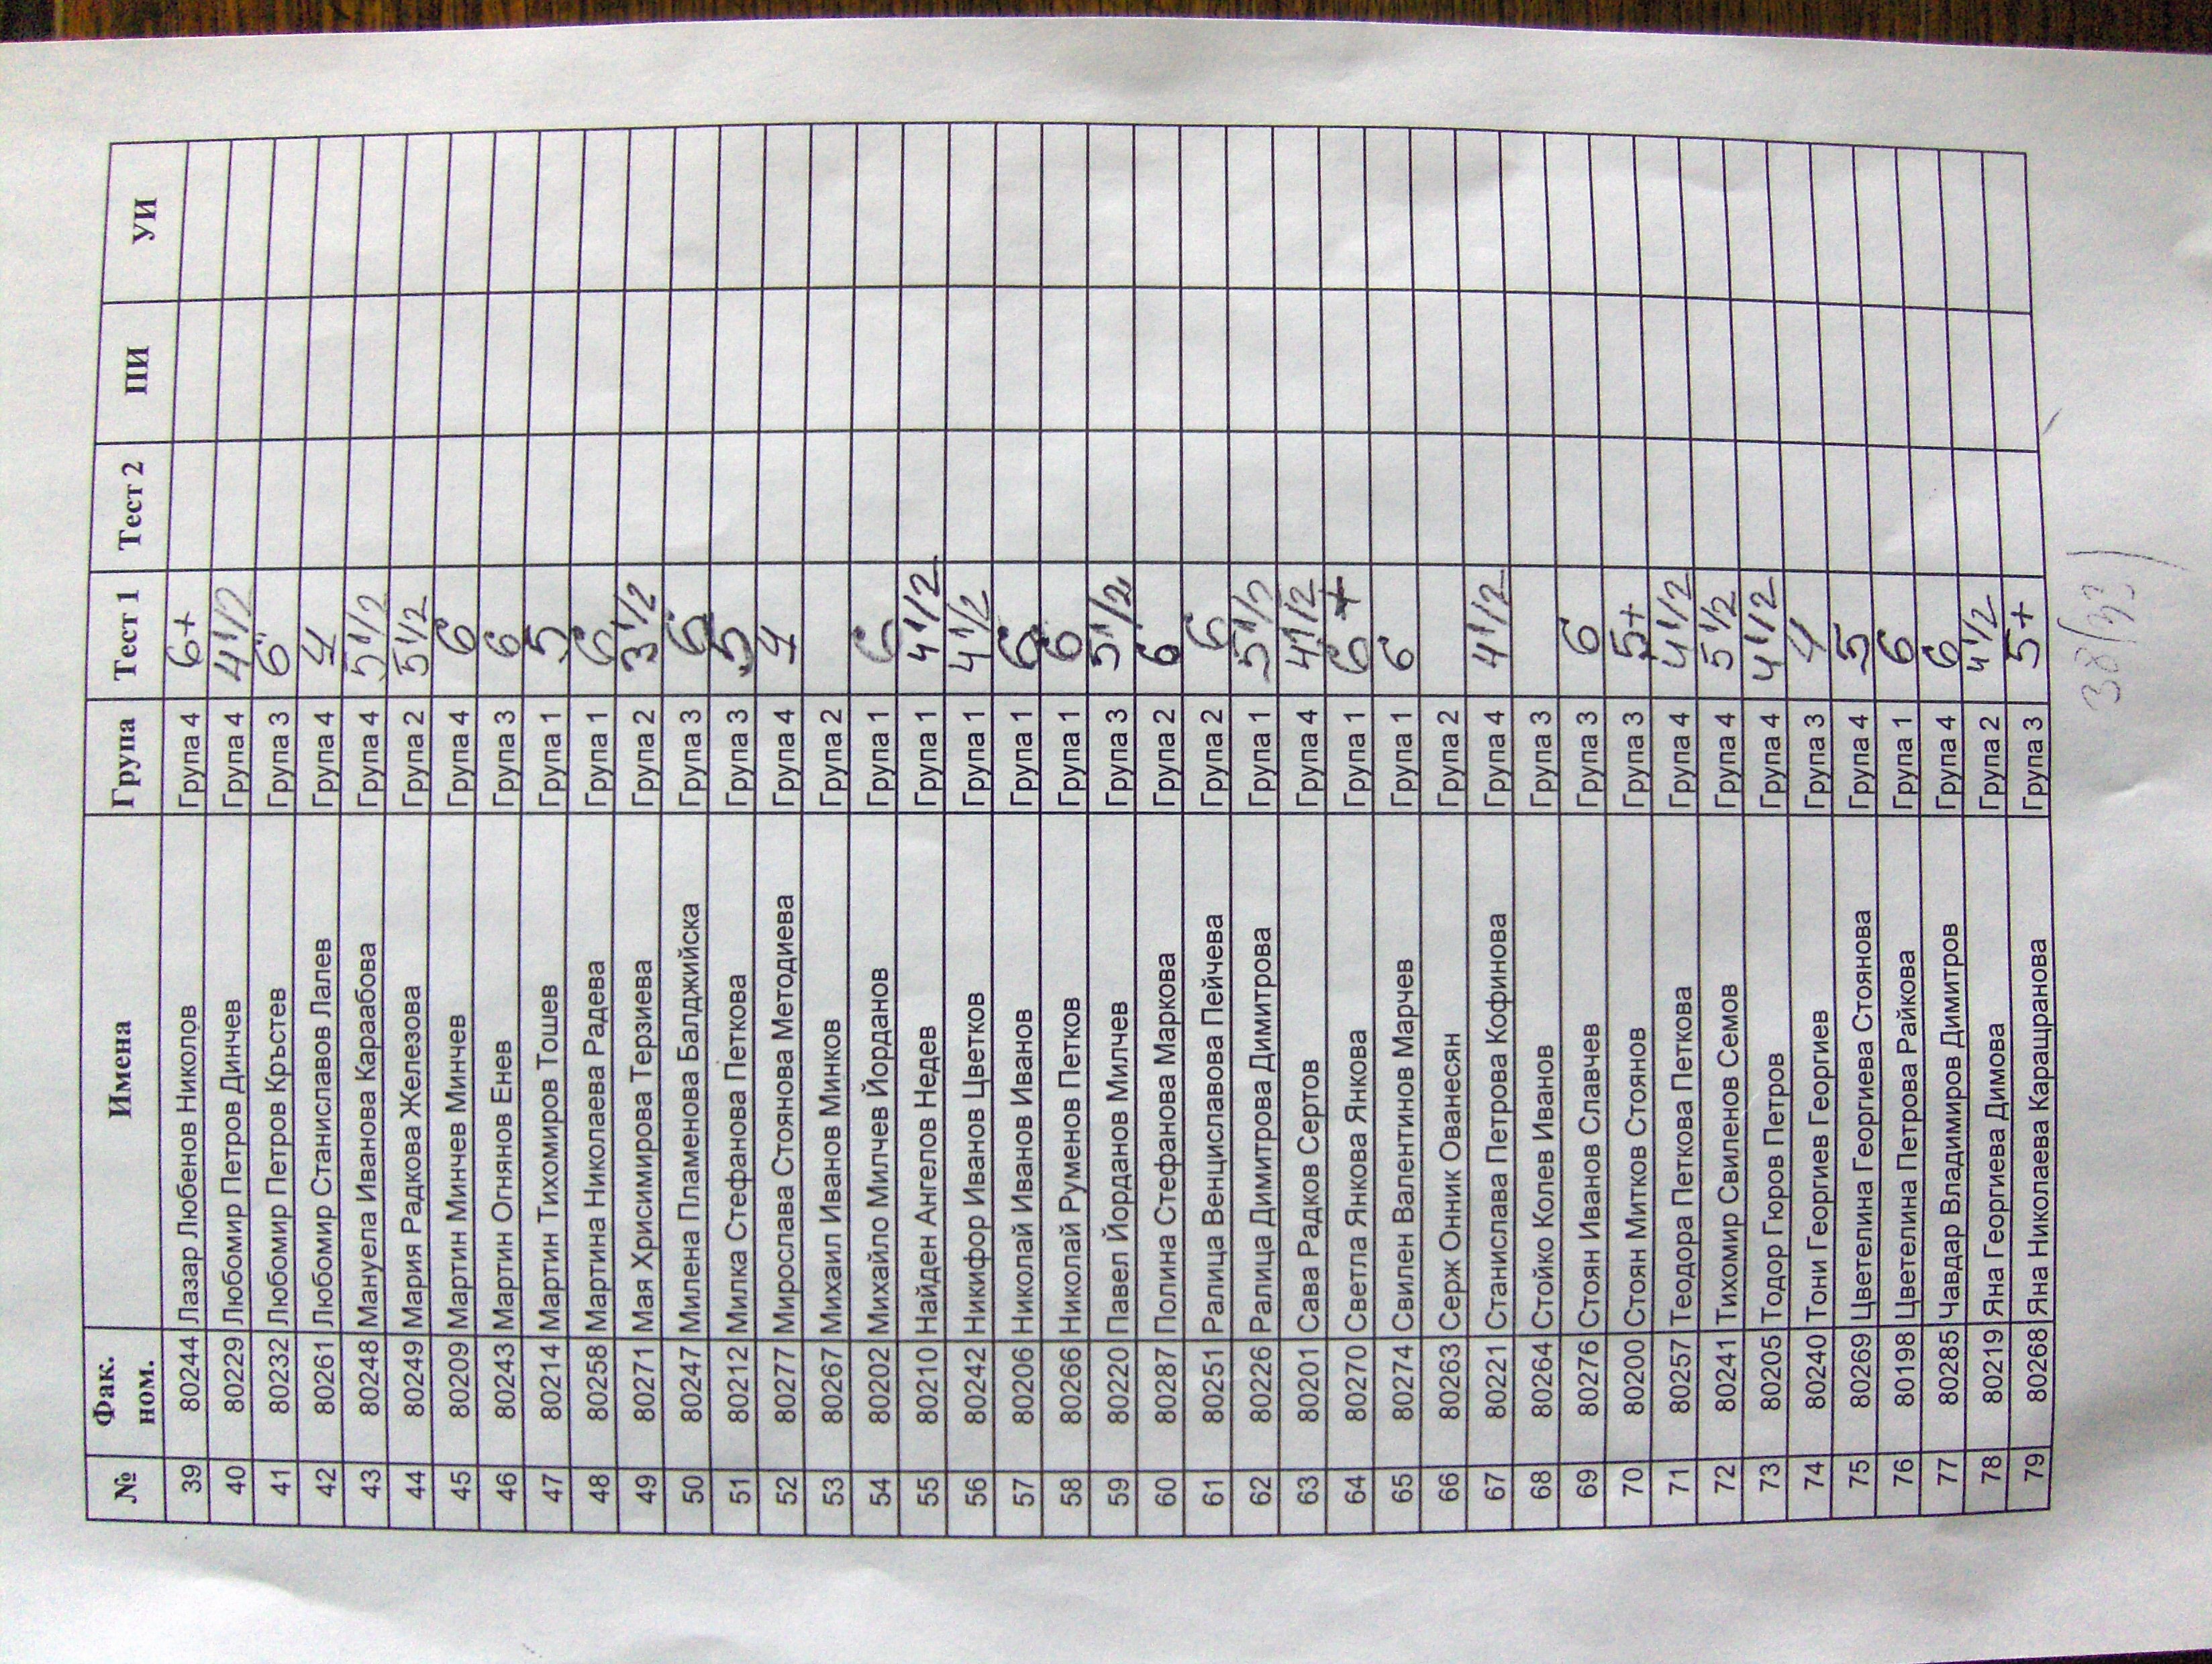 № Фак. ном. Имена Група Тест 1 Тест 2 ПИ УИ
39 80244 Лазар Любенов Николов Група 4 6+
40 80229 Любомир Петров Динчев Група 4 4 1/2
41 80232 Любомир Петров Кръстев Група 3 6
42 80261 Любомир Станиславов Лалев Група 4 4
43 80248 Мануела Иванова Караабова Група 4 5 1/2
44 80249 Мария Радкова Железова Група 2 5 1/2
45 80209 Мартин Минчев Минчев Група 4 6
46 80243 Мартин Огнянов Енев Група 3 6
47 80214 Мартин Тихомиров Тошев Група 1 5
48 80258 Мартина Николаева Радева Група 1 6
49 80271 Мая Хрисимирова Терзиева Група 2 3 1/2
50 80247 Милена Пламенова Балджийска Група 3 6
51 80212 Милка Стефанова Петкова Група 3 5
52 80277 Мирослава Стоянова Методиева Група 4 4
53 80267 Михаил Иванов Минков Група 2
54 80202 Михайло Милчев Йорданов Група 1 6
55 80210 Найден Ангелов Недев Група 1 4 1/2
56 80242 Никифор Иванов Цветков Група 1 4 1/2
57 80206 Николай Иванов Иванов Група 1 6
58 80266 Николай Руменов Петков Група 1 6
59 80220 Павел Йорданов Милчев Група 3 5 1/2
60 80287 Полина Стефанова Маркова Група 2 6
61 80251 Ралица Венциславова Пейчева Група 2 6
62 80226 Ралица Димитрова Димитрова Група 1 5 1/2
63 80201 Сава Радков Сертов Група 4 4 1/2
64 80270 Светла Янкова Янкова Група 1 6+
65 80274 Свилен Валентинов Марчев Група 1 6
66 80263 Серж Онник Ованесян Група 2
67 80221 Станислава Петрова Кофинова Група 4 4 1/2
68 80264 Стойко Колев Иванов Група 3
69 80276 Стоян Иванов Славчев Група 3 6
70 80200 Стоян Митков Стоянов Група 3 5+
71 80257 Теодора Петкова Петкова Група 4 4 1/2
72 80241 Тихомир Свиленов Семов Група 4 5 1/2
73 80205 Тодор Гюров Петров Група 4 4 1/2
74 80240 Тони Георгиев Георгиев Група 3 4
75 80269 Цветелина Георгиева Стоянова Група 4 5
76 80198 Цветелина Петрова Райкова Група 1 6
77 80285 Чавдар Владимиров Димитров Група 4 6
78 80219 Яна Георгиева Димова Група 2 4 1/2
79 80268 Яна Николаева Карацранова Група 3 5+